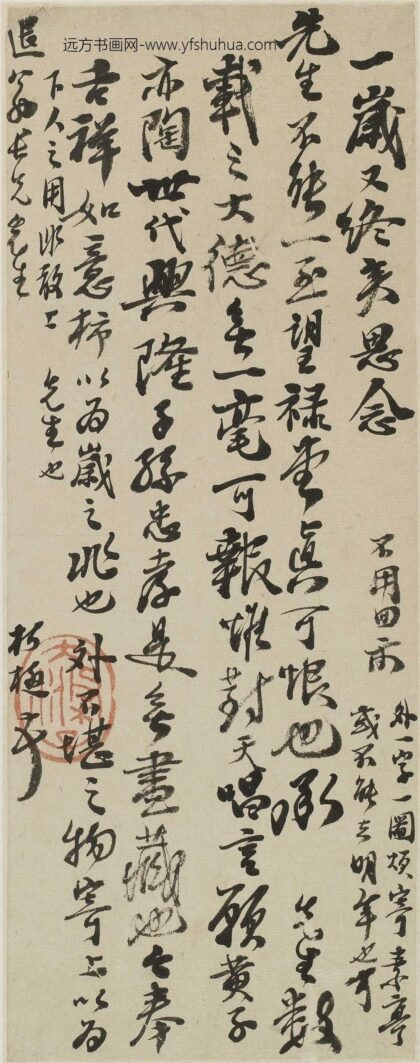 远方书画网-www.yfshuhua.com
一歲又終矣思念
先生不能一至望祿堂真可恨也承 先生數
載之大德無一毫可報惟對天唱言願黃子
亦陶世代興隆子孫忠孝是無盡藏也今奉
吉祥如意柿以為歲之兆也 外不堪之物寄上以為
下人之用非敢上 先生也
退翁長兄先生
朽極弟
不用回示
外一字一圖煩寄素亭
或不能去明年也可